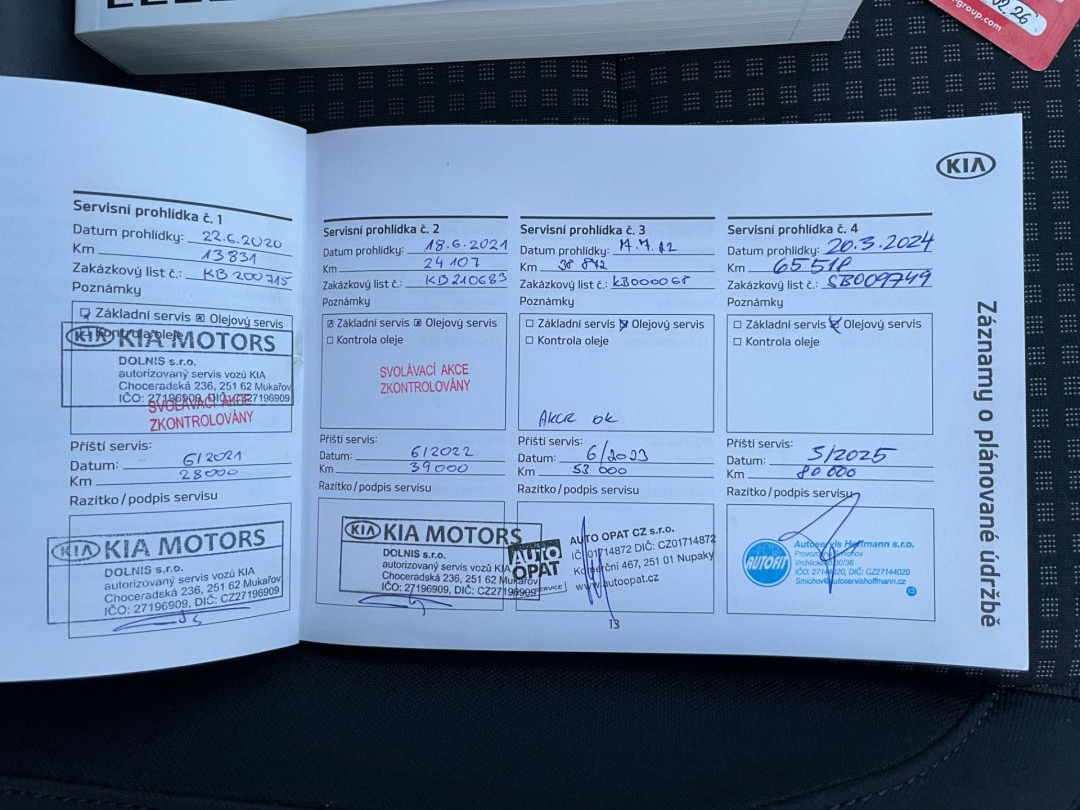 group.com
02.26
KIA
Servisní prohlídka č. 1
Datum prohlídky: 22.6.2020
Km 13831
Zakázkový list č.: KB200715
Poznámky
Základní servis Olejový servis
Kontrola oleje
KIA KIA MOTORS
DOLNIS s.r.o.
autorizovaný servis vozů KIA
Choceradská 236, 251 62 Mukařov
IČO: 27196909, DIČ: CZ27196909
SVOLÁVACÍ AKCE
ZKONTROLOVÁNY
Příští servis:
Datum: 6/2021
Km 28000
Razítko/podpis servisu
KIA KIA MOTORS
DOLNIS s.r.o.
autorizovaný servis vozů KIA
Choceradská 236, 251 62 Mukařov
IČO: 27196909, DIČ: CZ27196909
Servisní prohlídka č. 2
Datum prohlídky: 18.6.2021
Km 24107
Zakázkový list č.: KB210683
Poznámky
Základní servis Olejový servis
Kontrola oleje
SVOLÁVACÍ AKCE
ZKONTROLOVÁNY
Příští servis:
Datum: 6/2022
Km 39000
Razítko/podpis servisu
KIA KIA MOTORS
DOLNIS s.r.o.
autorizovaný servis vozů KIA
Choceradská 236, 251 62 Mukařov
IČO: 27196909, DIČ: CZ27196909
Servisní prohlídka č. 3
Datum prohlídky:
Km 38 842
Zakázkový list č.: KB000068
Poznámky
Základní servis Olejový servis
Kontrola oleje
AKCE OK
Příští servis:
Datum: 6/2023
Km 53 000
Razítko/podpis servisu
AUTO
OPAT
SERVICE
AUTO OPAT CZ s.r.o.
IČ: 01714872 DIČ: CZ01714872
Komerční 467, 251 01 Nupaky
www.autoopat.cz
Servisní prohlídka č. 4
Datum prohlídky: 20.3.2024
Km 65518
Zakázkový list č.: SB009749
Poznámky
Základní servis Olejový servis
Kontrola oleje
Příští servis:
Datum: 5/2025
Km 80 000
Razítko/podpis servisu
AUTOFIT
Autoservis Hoffmann s.r.o.
Provozovna Smíchov
Vrchlického 30/36
IČO: 27144020, DIČ: CZ27144020
Smichov@autoservishoffmann.cz
13
13
Záznamy o plánované údržbě